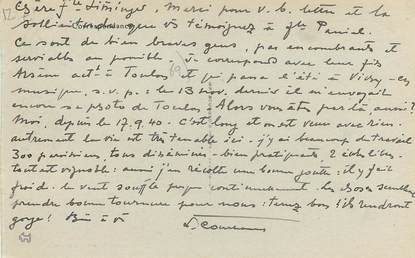 Chère flle Limsinger, Merci pour v. b. lettre et la
Correspondance
sollicitude que vs témoignez à flle Paniel.
Ce sont de bien braves gens, pas encombrants et
serviables au possible. Je correspond avec leur fils
Arsène actt à Toulon et qui passa l'été à Vichy - es
musique, s. v. p. : le 13 nov. dernier il m'envoyait
encore sa photo de Toulon. Alors vous êtes par là aussi ?
Moi, depuis le 17.9.40. C'est long et on est venu avec rien.
autrement la vie est très tenable ici. J'y ai beaucoup de travail
300 paroissiens, tous disséminés - bien pratiquants, 2 églises.
tout est vignoble : aussi j'en récolte une bonne goutte : il y fait
froid. le vent souffle presque continuellement. les choses semblent
prendre bonne tournure pour nous : tenez bon ! ils rendront
gorge ! Bien à v